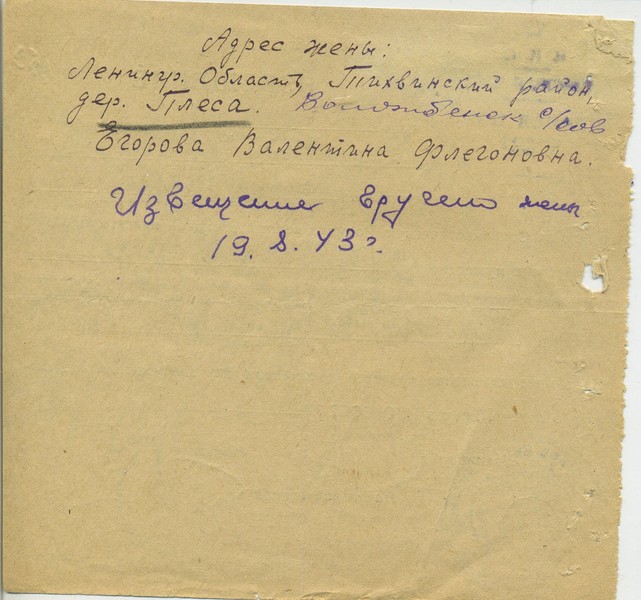 Адрес жены:
Ленингр. Область, Тихвинский район,
дер. Плеса. с/сов
Егорова Валентина Флегоновна.
Извещение вручено жены
19.8.43 г.